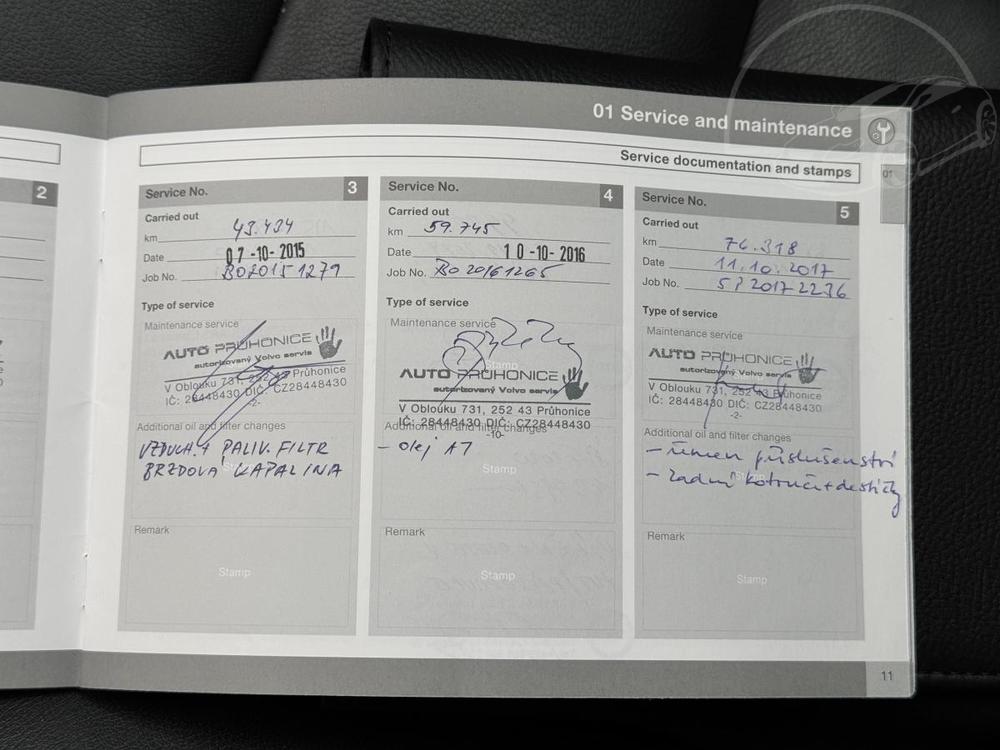 01 Service and maintenance
Service documentation and stamps
01
2
Service No. 3
Carried out
km 43.434
Date 07-10-2015
Job No. BO20151279
Type of service
Maintenance service
AUTO PRŮHONICE
autorizovaný Volvo servis
V Oblouku 731, 252 43 Průhonice
IČ: 28448430 DIČ: CZ28448430
-2-
Additional oil and filter changes
VZDUCH. + PALIV. FILTR
BRZDOVÁ KAPALINA
Remark
Stamp
Service No. 4
Carried out
km 59.745
Date 10-10-2016
Job No. BO20161265
Type of service
Maintenance service
Stamp
AUTO PRŮHONICE
autorizovaný Volvo servis
V Oblouku 731, 252 43 Průhonice
IČ: 28448430 DIČ: CZ28448430
-10-
Additional oil and filter changes
- olej AT
Stamp
Remark
Stamp
Service No. 5
Carried out
km 76.318
Date 11.10.2017
Job No. SP20172236
Type of service
Maintenance service
AUTO PRŮHONICE
autorizovaný Volvo servis
V Oblouku 731, 252 43 Průhonice
IČ: 28448430 DIČ: CZ28448430
-2-
Additional oil and filter changes
- řemen příslušenství
- zadní kotouče+destičky
Remark
Stamp
11